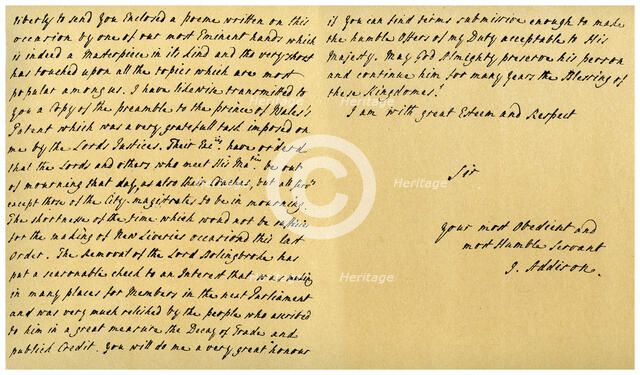 liberty to send you enclosed a poeme written on this
occasion by one of our most Eminent hands which
is indeed a Masterpiece in its kind and tho very short
has touched upon all the topics which are most
popular among us. I have likewise transmitted to
you a Copy of the preamble to the prince of Wales's
Patent which was a very gratefull task imposed on
me by the Lords Justices. Their Exies. have orderd
that the Lords and others who meet His Matie be out
of mourning that day, as also their Coaches, but all servts
except those of the City-magistrates to be in mourning.
The shortnesse of the time which wond not be suffict
for the making of New Liveries occasiond this last
Order. The Removal of the Lord Bolingbroke has
put a seasonable check to an Interest that was making
in many places for Members in the next Parliament
and was very much relished by the people who ascribed
to him in a great measure the Decay of Trade and
publick Credit. You will do me a very great honour
if you can find terms submissive enough to make
the humble Offers of my Duty acceptable to His
Majesty. May God Almighty preserve his person
and continue him for many years the Blessing of
these Kingdomes!
I am with great Esteem and Respect
Sir
your most Obedient and
most Humble Servant
J. Addison.
Heritage
Heritage
Heritage
Heritage
Heritage
©